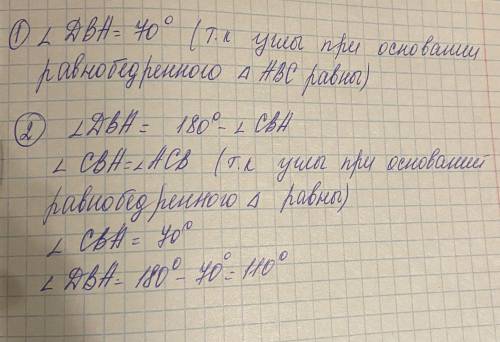 ① ∠ DBA = 70° (т.к углы при основании
равнобедренного △ ABC равны)
② ∠DBA = 180° - ∠ CBA
∠ CBA = ∠ACB (т.к углы при оснований
равнобедренного △ равны)
∠ CBA = 70°
∠ DBA = 180° - 70° = 110°